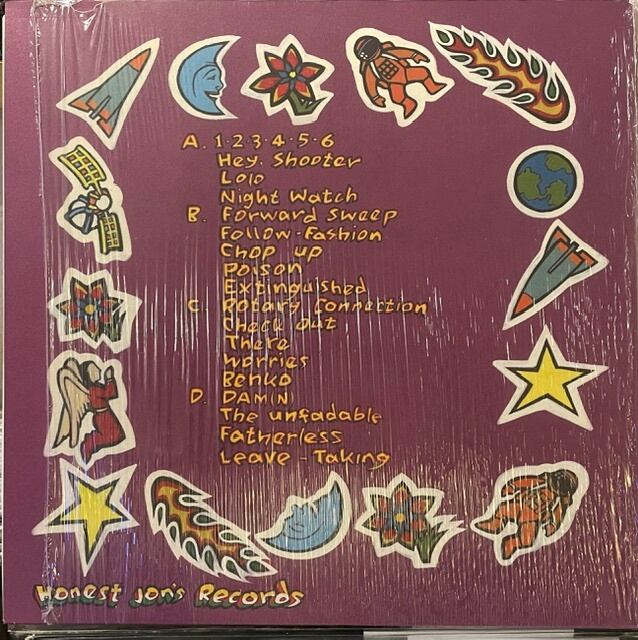 A. 1-2-3-4-5-6
Hey, Shooter
Lolo
Night Watch
B. Forward Sweep
Follow-Fashion
Chop up
Poison
Extinguished
C. Rotary Connection
Check Out
There
Worries
Benko
D. DAM(N)
The unfadable
Fatherless
Leave-Taking
Honest Jon's Records